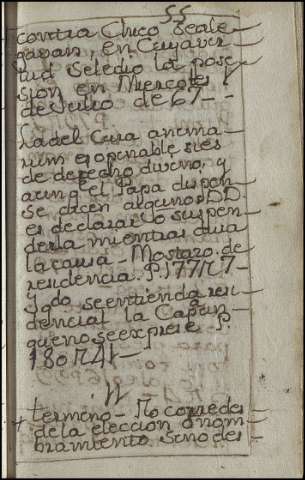 55
contra Chico se ale
gavan, en Cuya vir
tud se le dio la pose
sion en Miercoles 1
de Julio de 67 -
La del Cura anima
rum es openable si es
de derecho divino, y
aunq el Papa dispen
se dicen algunos DD.
es declarar o suspen
derla mientras dura
la causa - Mostazo. de
residencia. P. 177
y qdo se entienda resi
dencial la Capan
queno se exprese - P.
180
termino - No corre des
de la eleccion o nom
bramiento sino des